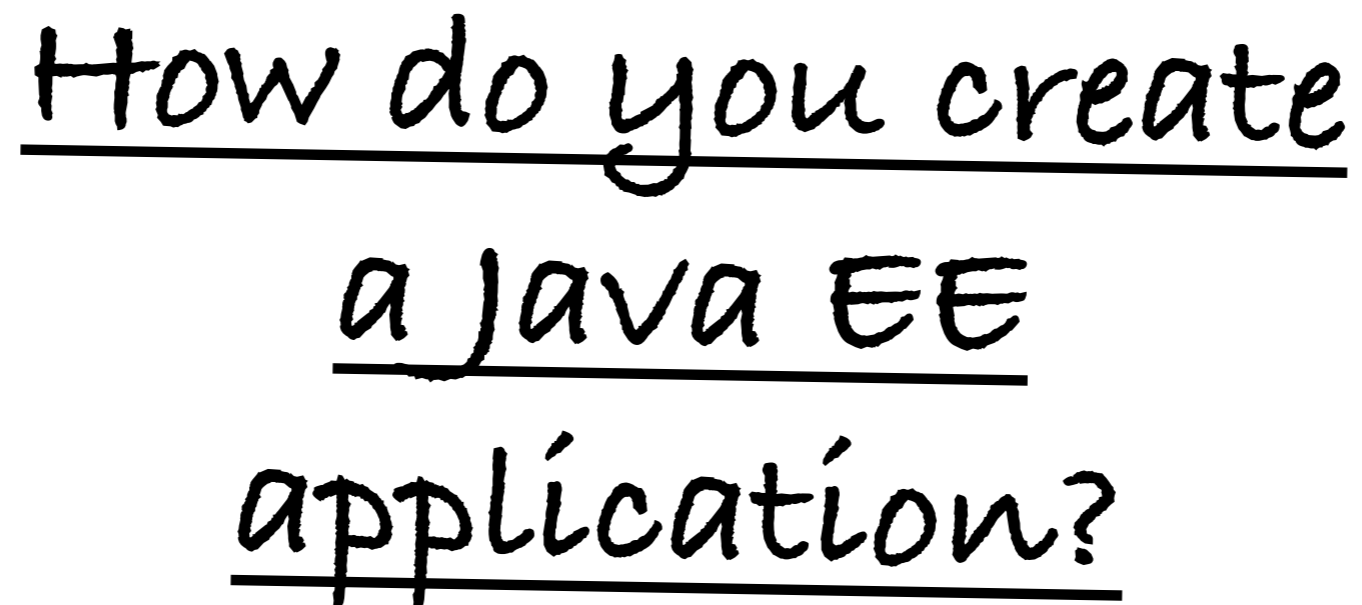 How do you create
a Java EE
application?